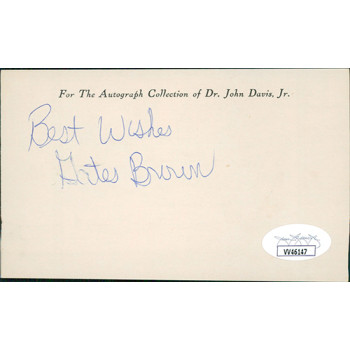 For The Autograph Collection of Dr. John Davis, Jr.
Best Wishes
Gates Brown
VV46147